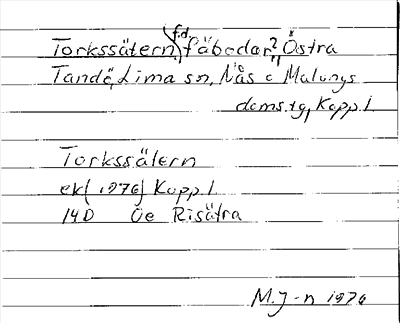 Torkssätern, f.d. fäbodar, Östra
Tandö, Lima sn, Nås o Malungs
doms.tg, Kopp. l
Torkssätern
ek (1976) Kopp. l
14D Öe Risätra
M. J-n 1976